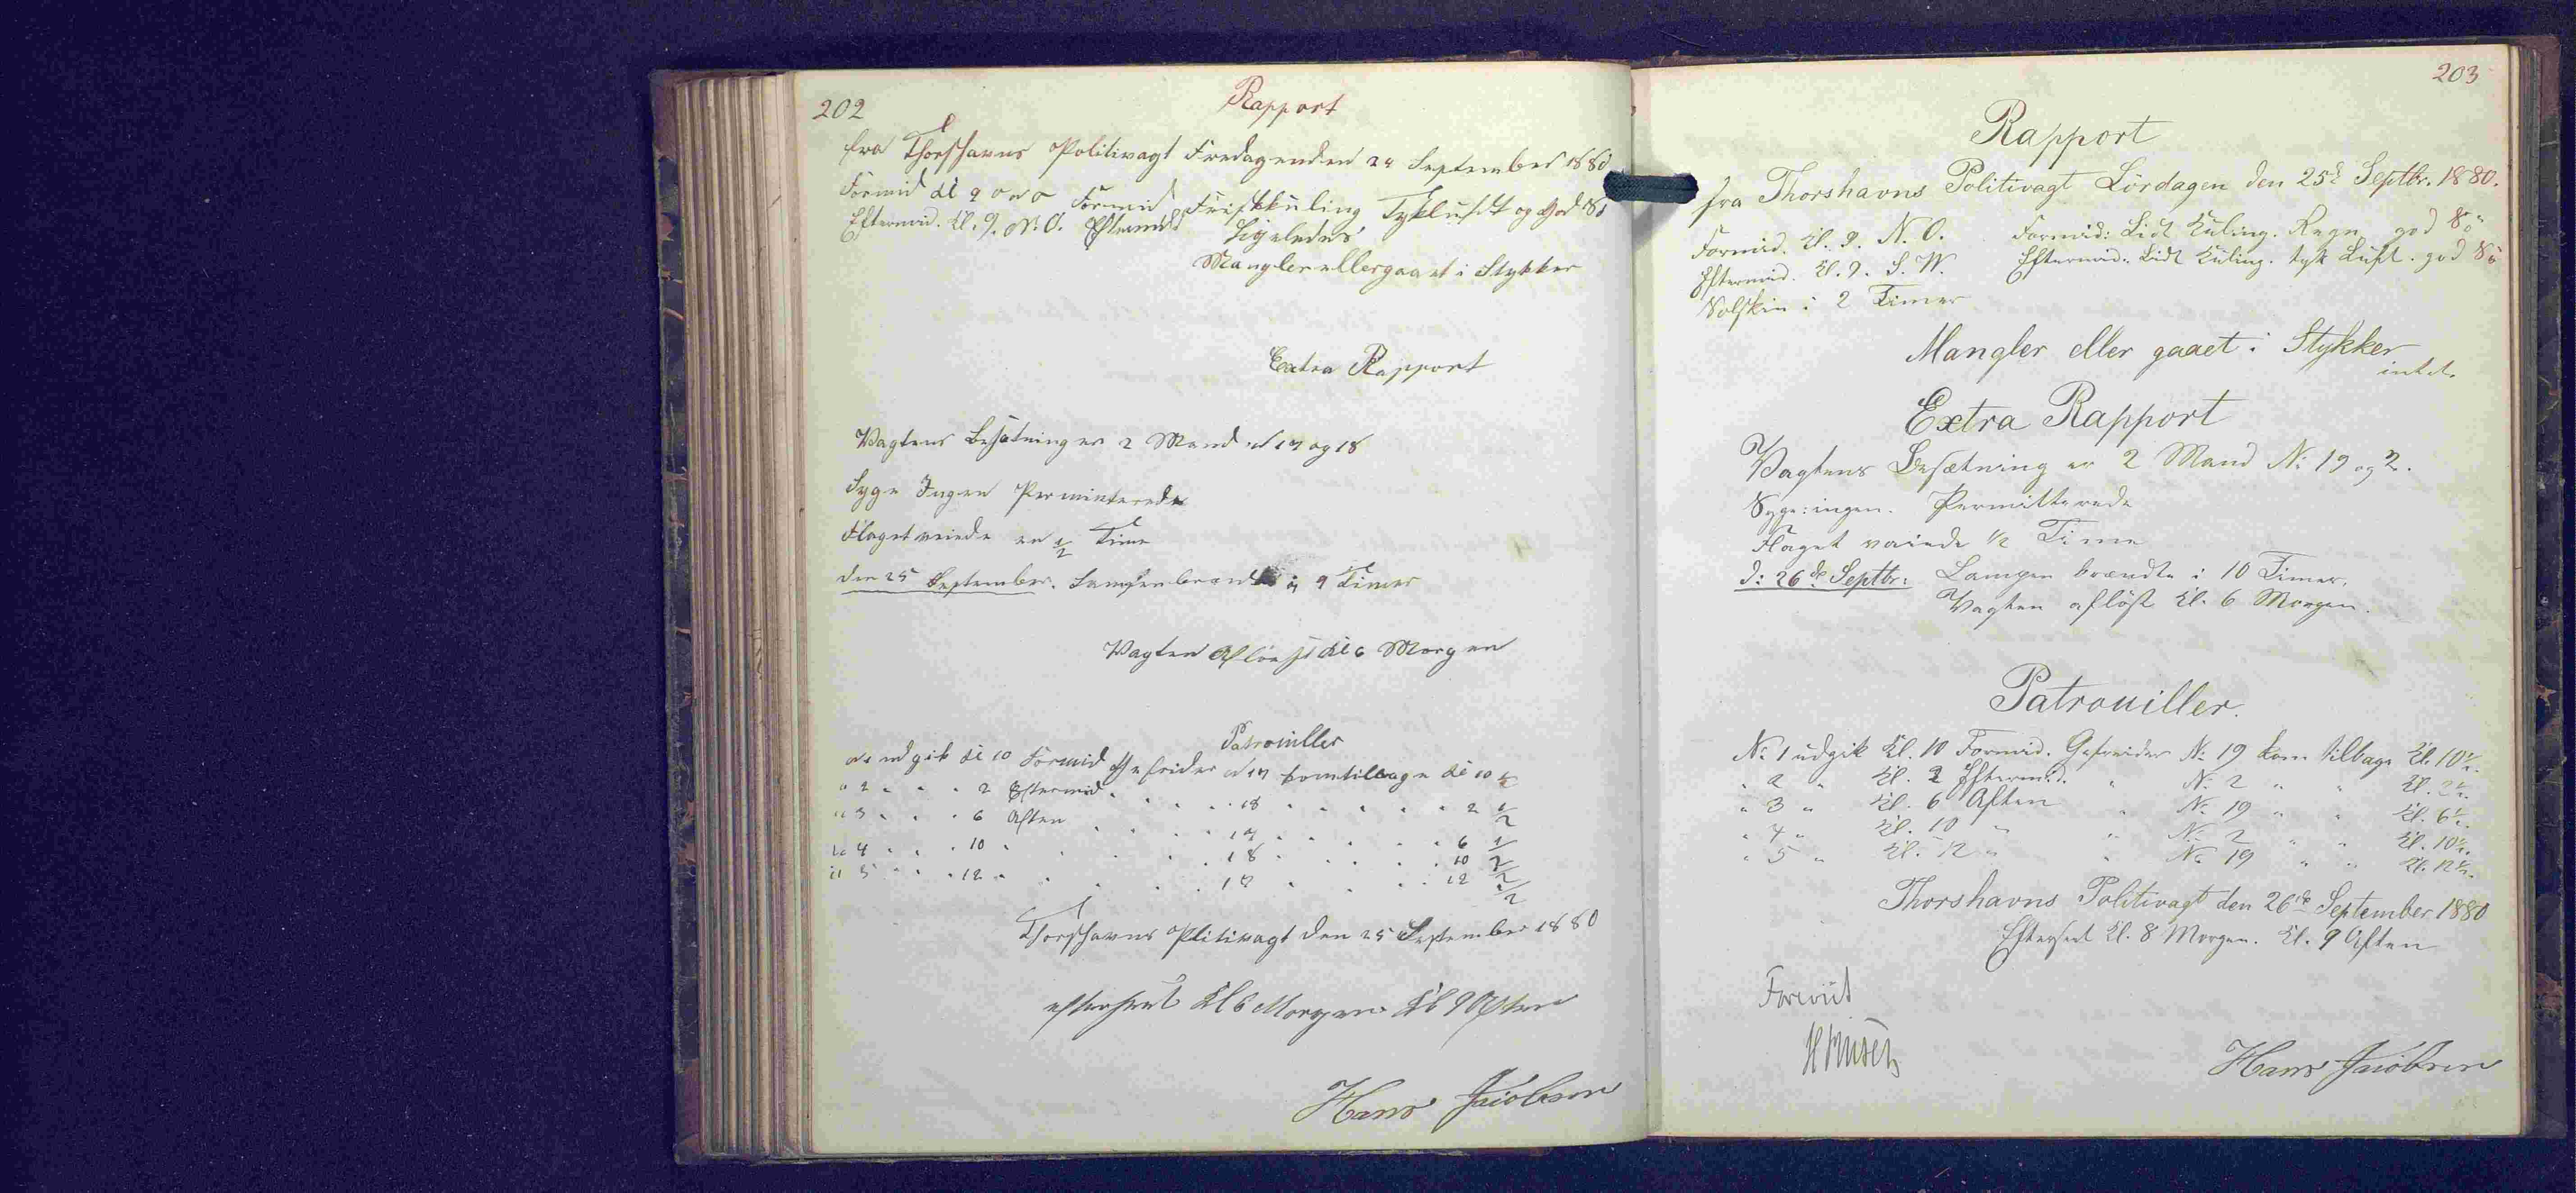 202
Rapport
fra Thorshavns Politivagt Fredagenden 24 September 1880
Formid Kl 9 Formid Friskkuling Tykluft og God
Eftermid. Kl. 9. N. O. Eftermid Ligeledes
Mangler ellergaaet i Stykker
Extra Rapport
Vagtens Besætning er 2 Mand 17 og 18
Syge Ingen Perminterede
Flaget veiede en 1/2 Time
den 25 September. Lampenbrændte i 9 Timer
Vagten Afløest Kl 6 Morgen
Patrouiller
udgik Kl 10 Formid Gefreider 17 komtilbage Kl 10 1/2
" 2 " " " 2 Eftermid " " " 18 " " " " 2 1/2
" 3 " " " 6 Aften " " " 17 " " " " 6 1/2
4 " " " 10 " " " " 18 " " " " 10 1/2
5 " " " 12 " " " " 17 " " " " 12 1/2
Thorshavns Plitivagt den 25 September 1880
efterseet Kl 8 Morgen Kl 9 Aften
Hans Jacobsen
203
Rapport
fra Thorshavns Politivagt Lördagen den 25d Septbr. 1880.
Formid. Kl. 9. N. O. Formid: Lidt Kuling. Regn god
Eftermid. Kl. 9. S. W. Eftermid. Lidt Kuling. tyk Luft. god
Solskin i 2 Timer
Mangler eller gaaet i Stykker
intet.
Extra Rapport
Vagtens Besætning er 2 Mand No 19 og 2.
Syge: ingen. Permitterede
Flaget vaiede 1/2 Time
d: 26de Septbr: Lampen brændte i 10 Timer.
Vagten aflöst Kl. 6 Morgen.
Patrouiller.
No 1 udgik Kl. 10 Formid. Gefreider No 19 kom tilbage Kl. 10 1/2.
" 2 " Kl. 2 Eftermid. " No 2 " " Kl. 2 1/2.
" 3 " Kl. 6 Aften " No 19 " " Kl. 6 1/2.
" 4 " Kl. 10 " " No 2 " " Kl. 10 1/2.
" 5 " Kl. 12 " " No 19 " " Kl. 12 1/2.
Thorshavns Politivagt den 26de September 1880
Efterseet Kl. 8 Morgen. Kl. 9 Aften
Foreviist
Hans Jacobsen